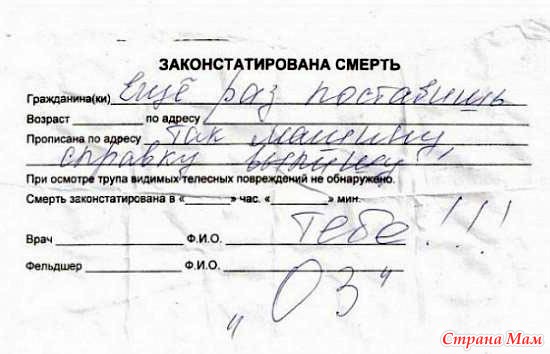 ЗАКОНСТАТИРОВАНА СМЕРТЬ
Гражданина(ки) Ещё раз поставишь
Возраст по адресу
Прописана по адресу так машину
справку выпишу
При осмотре трупа видимых телесных повреждений не обнаружено.
Смерть законстатирована в «______» час. «______» мин.
тебе!!!
Врач Ф.И.О.
Фельдшер Ф.И.О.
"ОЗ"
Страна Мам